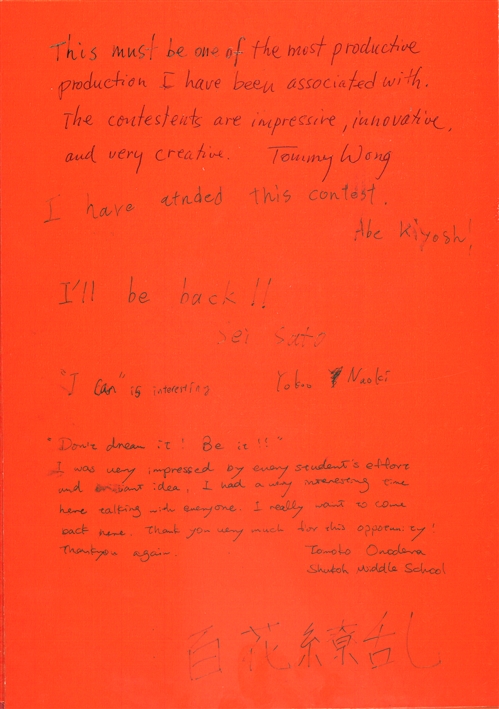 This must be one of the most productive
production I have been associated with.
The contestents are impressive, innovative,
and very creative. Tommy Wong
I have atnded this contest.
Abe Kiyoshi
I'll be back!!
Sei Sato
"I can" is interesting Yokoo Naoki
"Don't dream it! Be it!!"
I was very impressed by every student's effort
and idea, I had a very interesting time
here talking with everyone. I really want to come
back here. Thank you very much for this oppotunity!
Thankyou again. Tomoko Onodera
Shutoh Middle School
百花繚乱